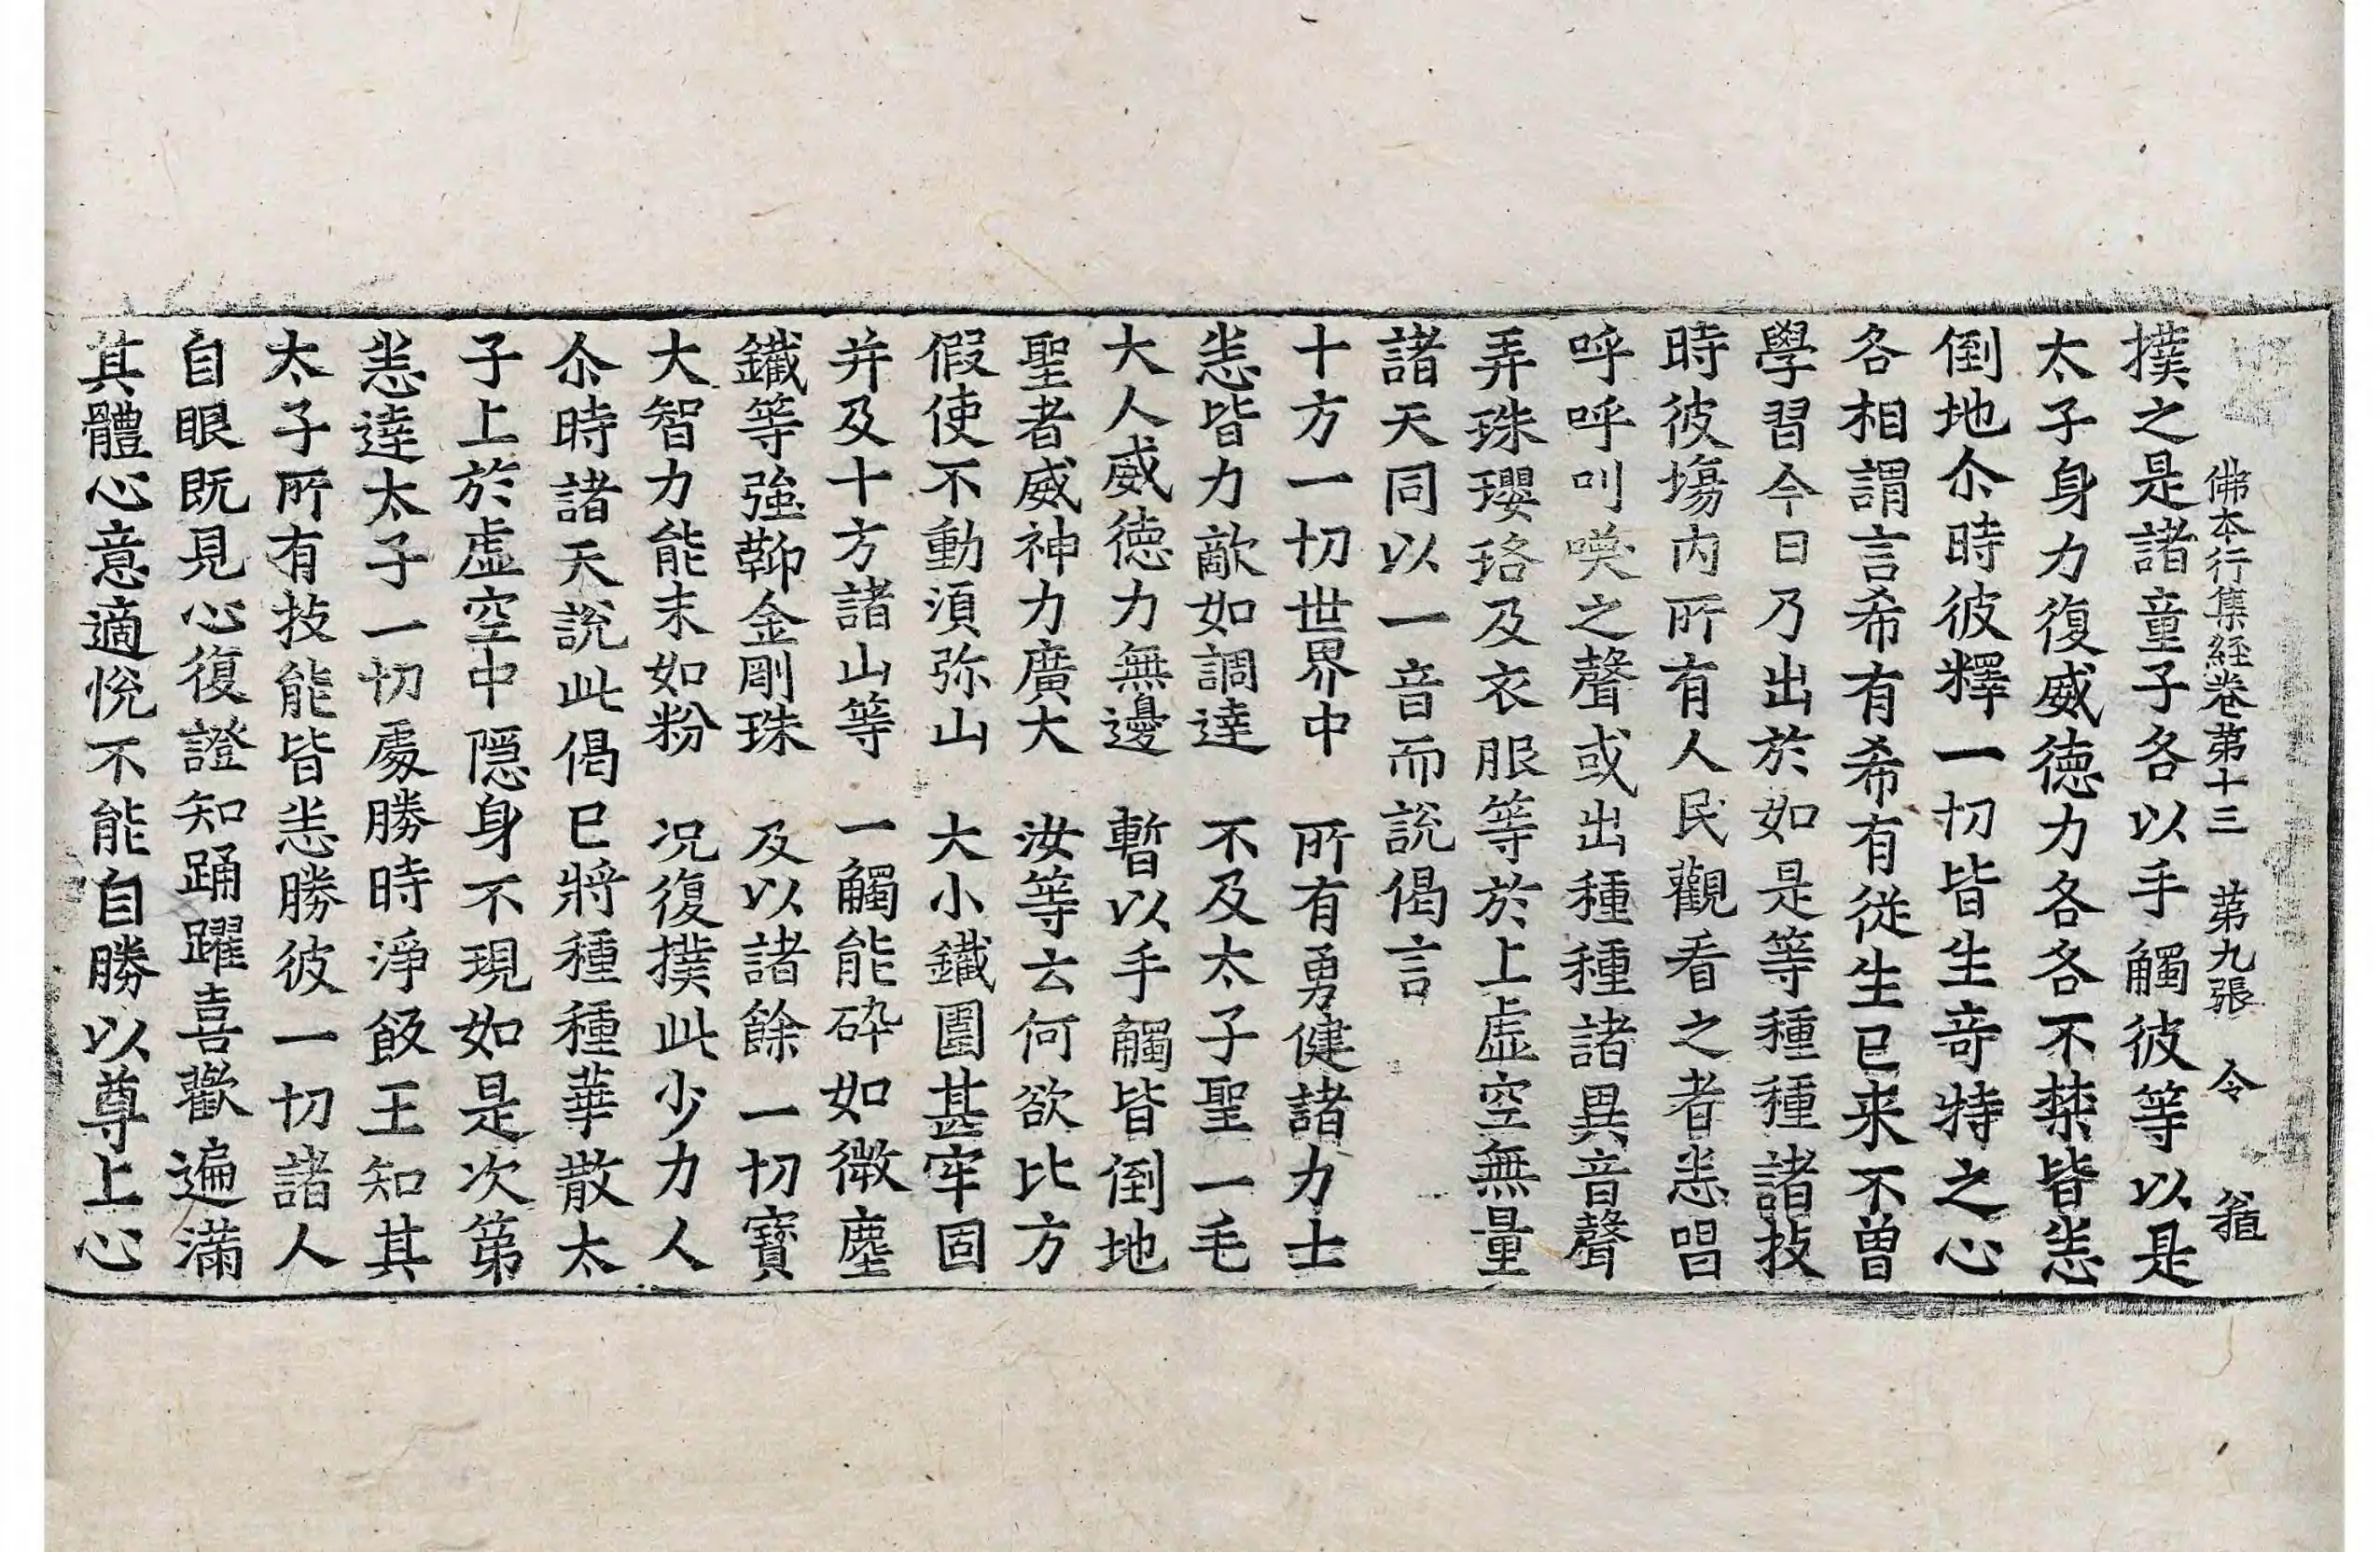 佛本行集經卷第十三　第九張　令
撲之是諸童子各以手觸彼等以是
太子身力復威德力各各不禁皆悉
倒地尒時彼釋一切皆生竒特之心
各相謂言希有希有從生已来不曾
學習今日乃出於如是等種種諸技
時彼塲内所有人民觀看之者悉唱
呼呼叫㗛之聲或出種種諸異音聲
弄珠瓔珞及衣服等於上虛空無量
諸天同以一音而說偈言
十方一切世界中　所有勇健諸力士
悉皆力敵如調達　不及太子聖一毛
大人威德力無邊　暫以手觸皆倒地
聖者威神力廣大　汝等云何欲比方
假使不動湏弥山　大小鐵圍甚牢固
并及十方諸山等　一觸能碎如微塵
鐵等強鞕金剛珠　及以諸餘一切寶
大智力能末如粉　况復撲此少力人
尒時諸天說此偈已將種種華散太
子上於虛空中隱身不現如是次第
悉達太子一切處勝時淨飯王知其
太子所有技能皆悉勝彼一切諸人
自眼既見心復證知踊躍喜歡遍滿
其體心意適悅不能自勝以尊上心